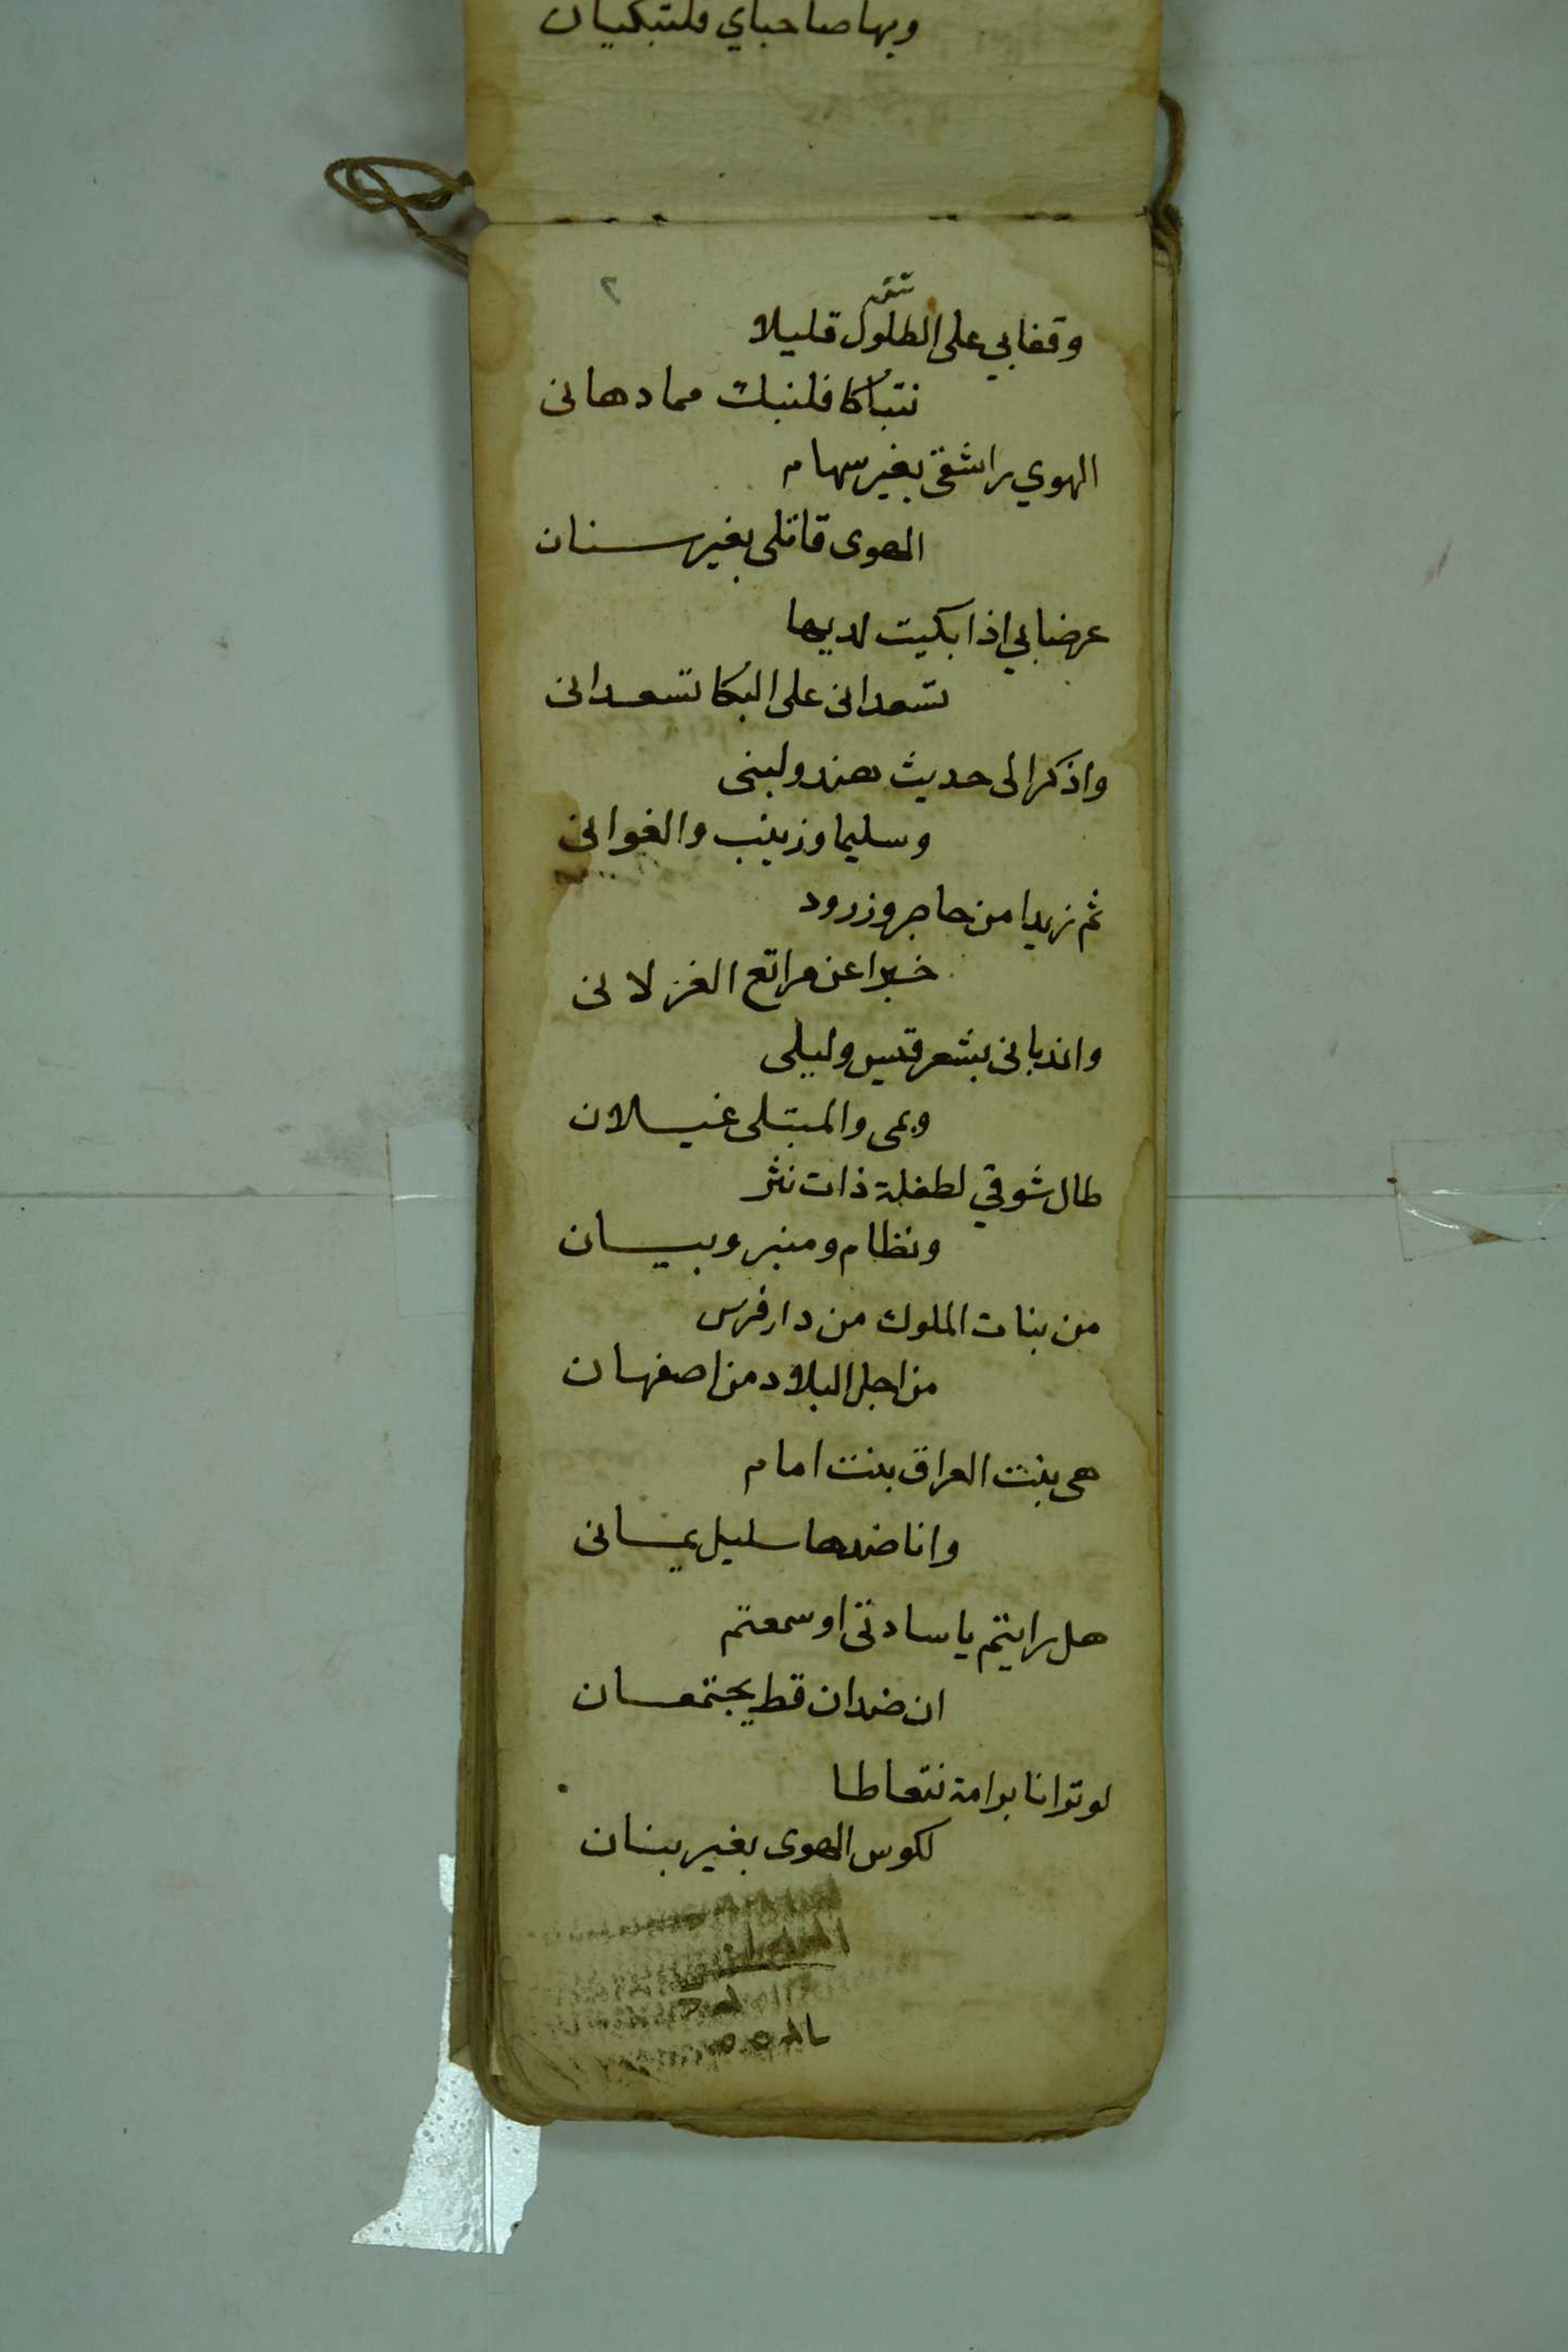 وبها صاحباي فلتبكيان
٢
تتمه
وقفا بي على الطلول قليلا
نتباكا فلنبك مما دهانى
الهوي راشقى بغير سهام
الهوى قاتلى بغير سنان
عرضا بي اذا بكيت لديها
تسعدانى على البكا تسعدانى
واذكرا لى حديث هند ولبنى
وسليما وزينب والغوانى
ثم زيدا من حاجر وزرود
خبرا عن مراتع الغزلانى
واندبانى بشعر قيس وليلى
وبمى والمبتلى غيلان
طال شوقي لطفلة ذات نثر
ونظام ومنبر وبيان
من بنات الملوك من دار فرس
من اجل البلاد من اصفهان
هى بنت العراق بنت امام
وانا ضدها سليل يمانى
هل رايتم يا سادتى او سمعتم
ان ضدان قط يجتمعان
لو ترانا برامة نتعاطا
لكوس الهوى بغير بنان